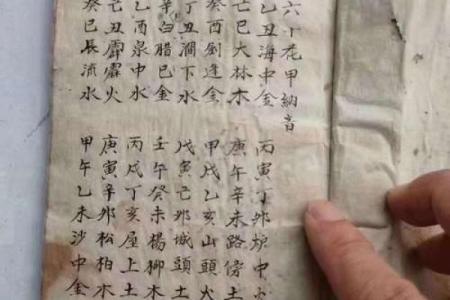 六十花甲納音
乙丑海中金
亡巳大林木
癸酉劉逢金
丁丑澗下水
辛白腊巳金
乙酉泉中水
己丑霹靂火
癸巳長流水
丙寅丁卯炉中火
庚午辛未路傍土
甲戌乙亥山頭火
戊寅己卯城頭土
壬午癸未楊柳木
丙戌丁亥屋上土
庚寅辛卯松柏木
甲午乙未沙中金